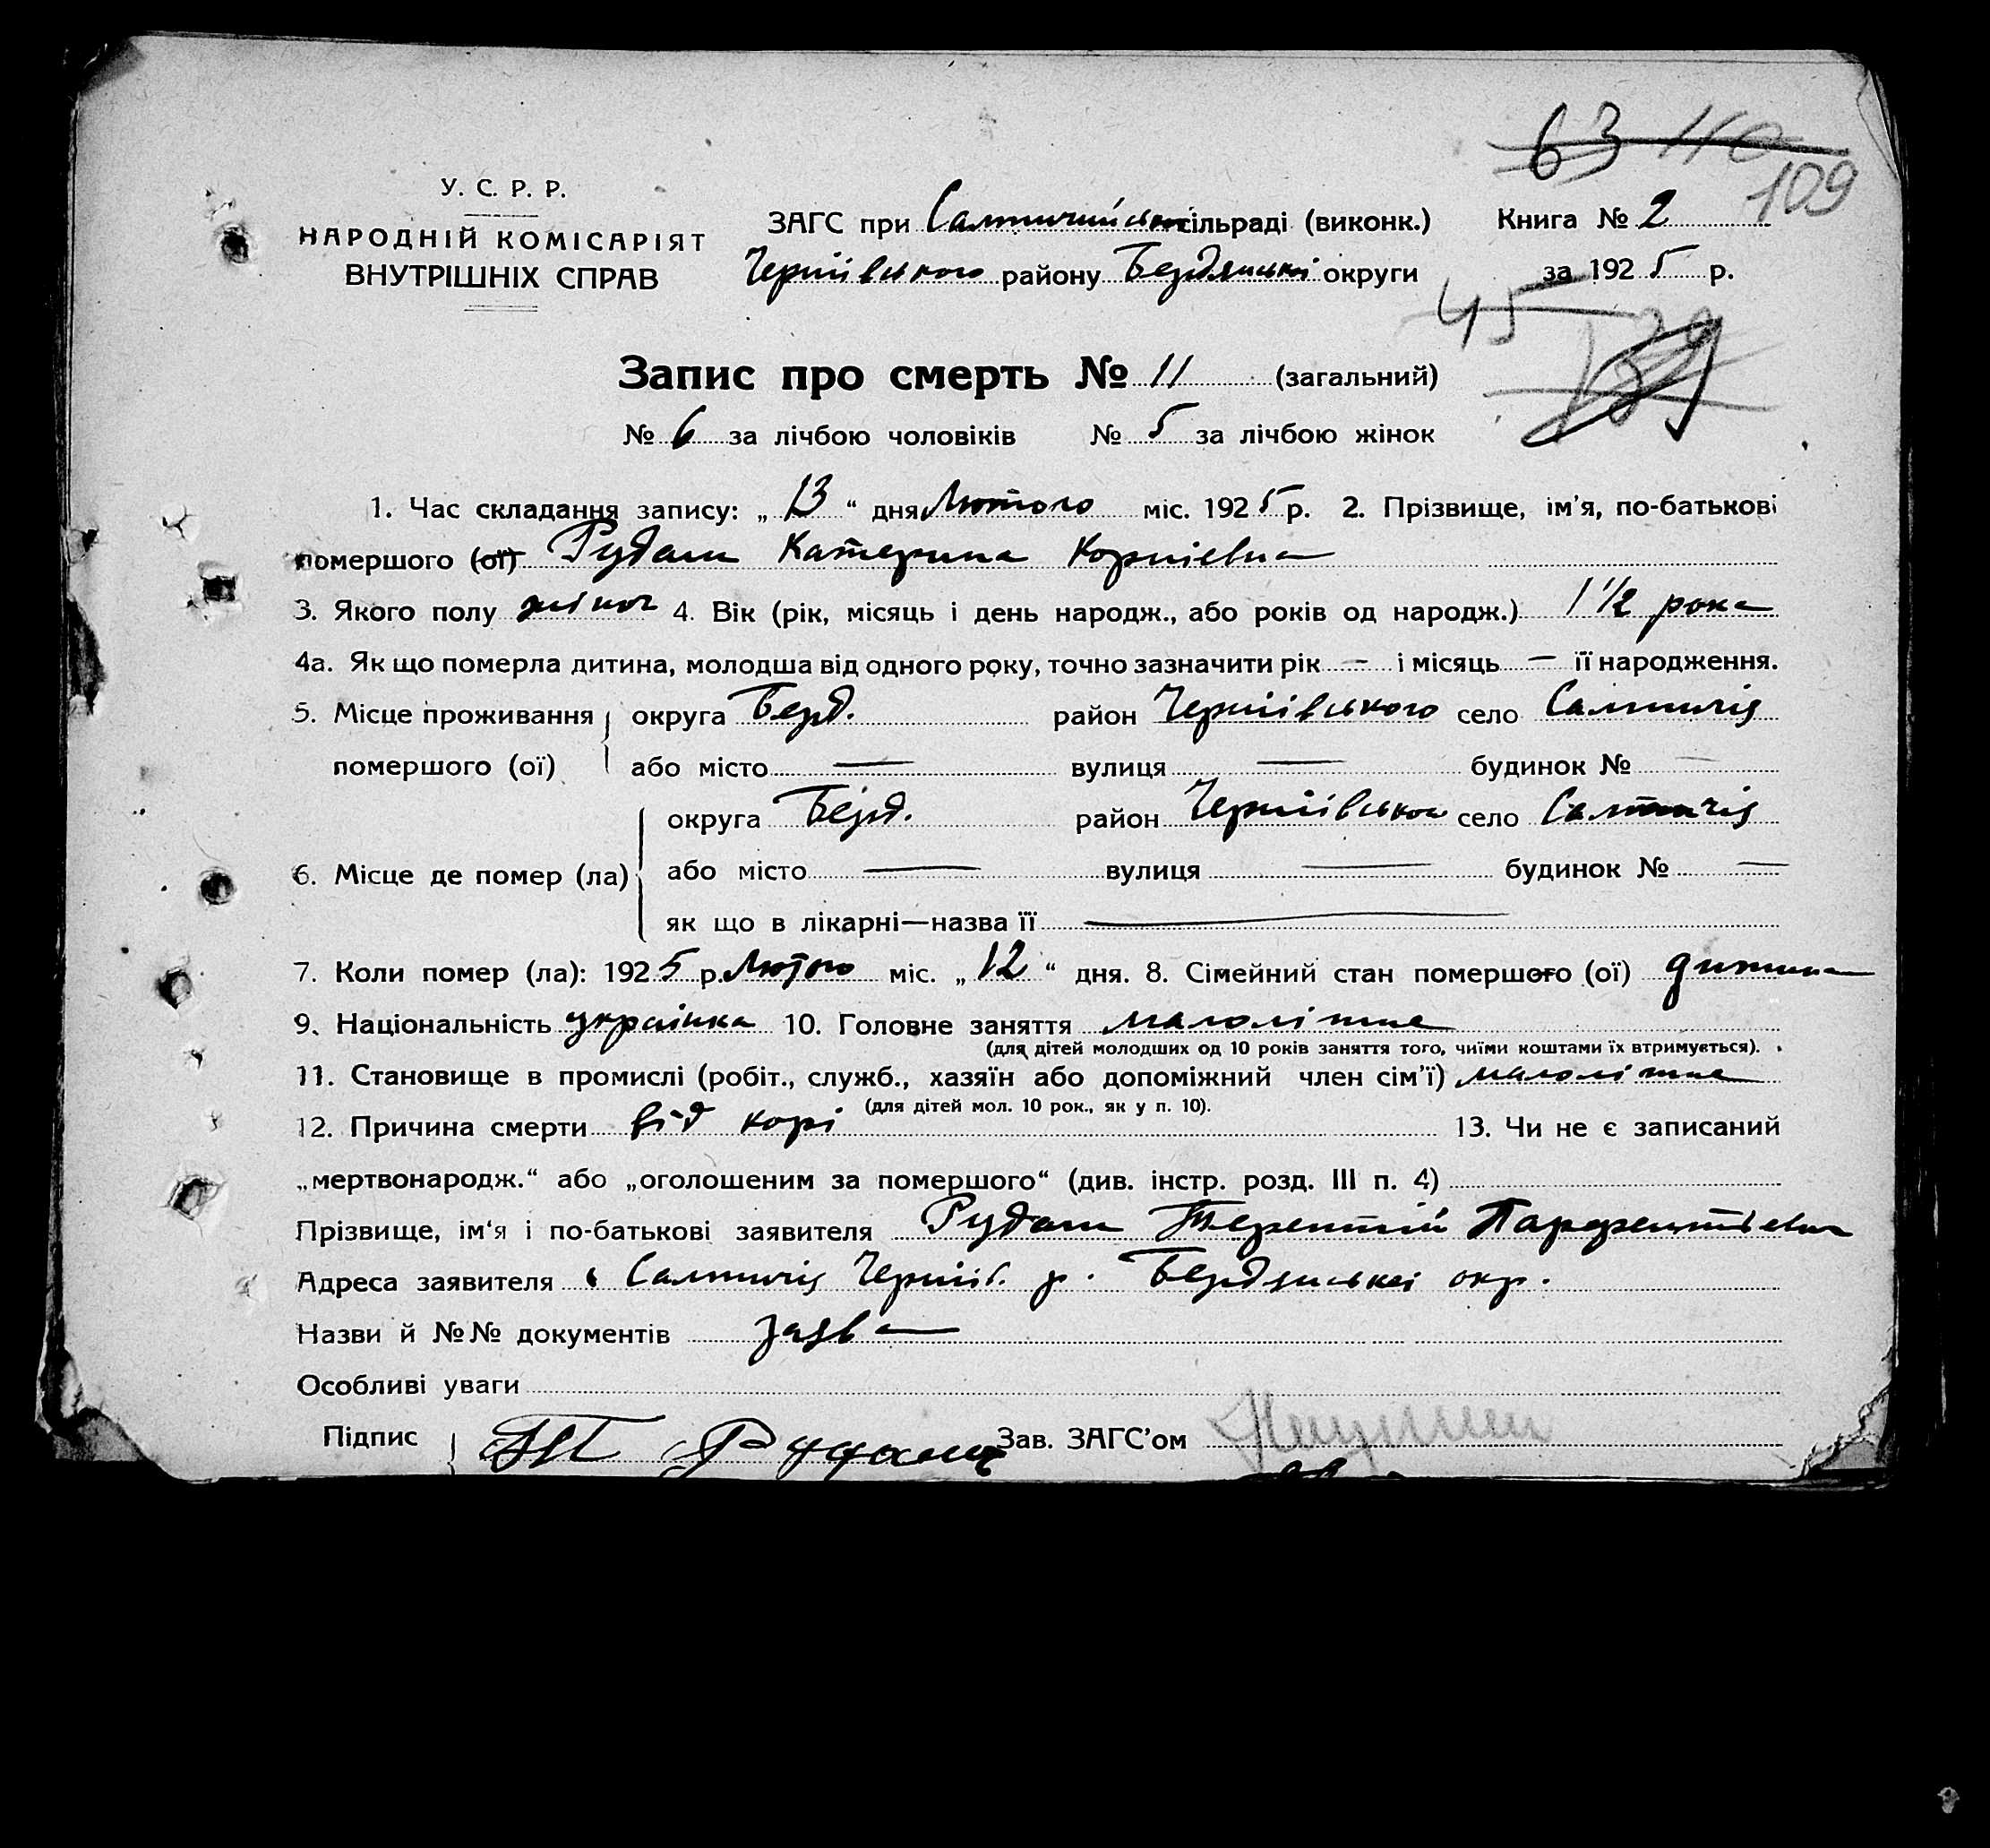 63 110
109
У. С. Р. Р.
НАРОДНІЙ КОМІСАРІЯТ
ВНУТРІШНІХ СПРАВ
ЗАГС при Салтичийськ сільраді (виконк.) Книга № 2
Чернігівського району Бердянської округи за 1925 р.
45
Запис про смерть № 11 (загальний)
№ 6 за лічбою чоловіків № 5 за лічбою жінок
1. Час складання запису: „13“ дня Лютого міс. 1925 р. 2. Прізвище, ім'я, по-батькові
помершого (ої) Рудаш Катерина Корніевна
3. Якого полу жіноч 4. Вік (рік, місяць і день народж., або років од народж.) 1 1/2 рока
4а. Як що померла дитина, молодша від одного року, точно зазначити рік — і місяць — її народження.
5. Місце проживання округа Берд. район Чернігівського село Салтичія
помершого (ої) або місто — вулиця — будинок № —
округа Берд. район Чернігівськог село Салтичія
6. Місце де помер (ла) або місто — вулиця — будинок № —
як що в лікарні—назва її —
7. Коли помер (ла): 1925 р. Лютого міс. „12“ дня. 8. Сімейний стан помершого (ої) дитина
9. Національність українка 10. Головне заняття малолітне
(для дітей молодших од 10 років заняття того, чиїми коштами їх втримується).
11. Становище в промислі (робіт., служб., хазяїн або допоміжний член сім'ї) малолітне
(для дітей мол. 10 рок., як у п. 10).
12. Причина смерти від корі 13. Чи не є записаний
„мертвонародж.“ або „оголошеним за помершого“ (див. інстр. розд. III п. 4)
Прізвище, ім'я і по-батькові заявителя Рудаш Терентій Парфентіевич
Адреса заявителя с Салтичія Черніг. р. Бердянської окр.
Назви й №№ документів заява
Особливі уваги
Підпис ТП Рудаш Зав. ЗАГС'ом